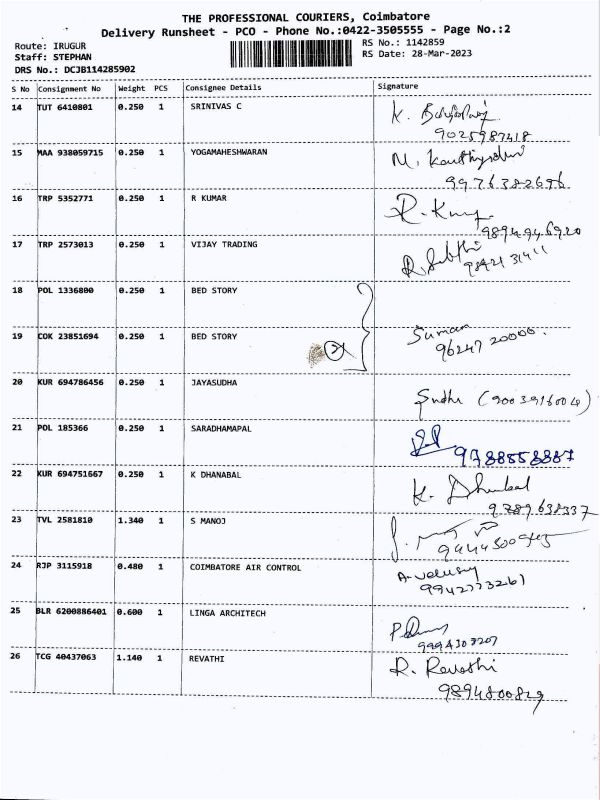 THE PROFESSIONAL COURIERS, Coimbatore
Delivery Runsheet - PCO - Phone No.:0422-3505555 - Page No.:2
Route: IRUGUR
RS No.: 1142859
Staff: STEPHAN
RS Date: 28-Mar-2023
DRS No.: DCJB114285902
S No Consignment No Weight PCS Consignee Details Signature
14 TUT 6410801 0.250 1 SRINIVAS C K.
9025987418
15 MAA 938059715 0.250 1 YOGAMAHESHWARAN M.
9976382696
16 TRP 5352771 0.250 1 R KUMAR R.
9894946920
17 TRP 2573013 0.250 1 VIJAY TRADING R.
18 POL 1336800 0.250 1 BED STORY
19 COK 23851694 0.250 1 BED STORY 2 Suman
9624720000.
20 KUR 694786456 0.250 1 JAYASUDHA Sudhi (9003916004)
21 POL 185366 0.250 1 SARADHAMAPAL
9788558887
22 KUR 694751667 0.250 1 K DHANABAL K. Dhanabal
9789638337
23 TVL 2581810 1.340 1 S MANOJ
24 RJP 3115918 0.480 1 COIMBATORE AIR CONTROL A.
9942773261
25 BLR 6200886401 0.600 1 LINGA ARCHITECH
9994303207
26 TCG 40437063 1.140 1 REVATHI R. Revathi
9894800829